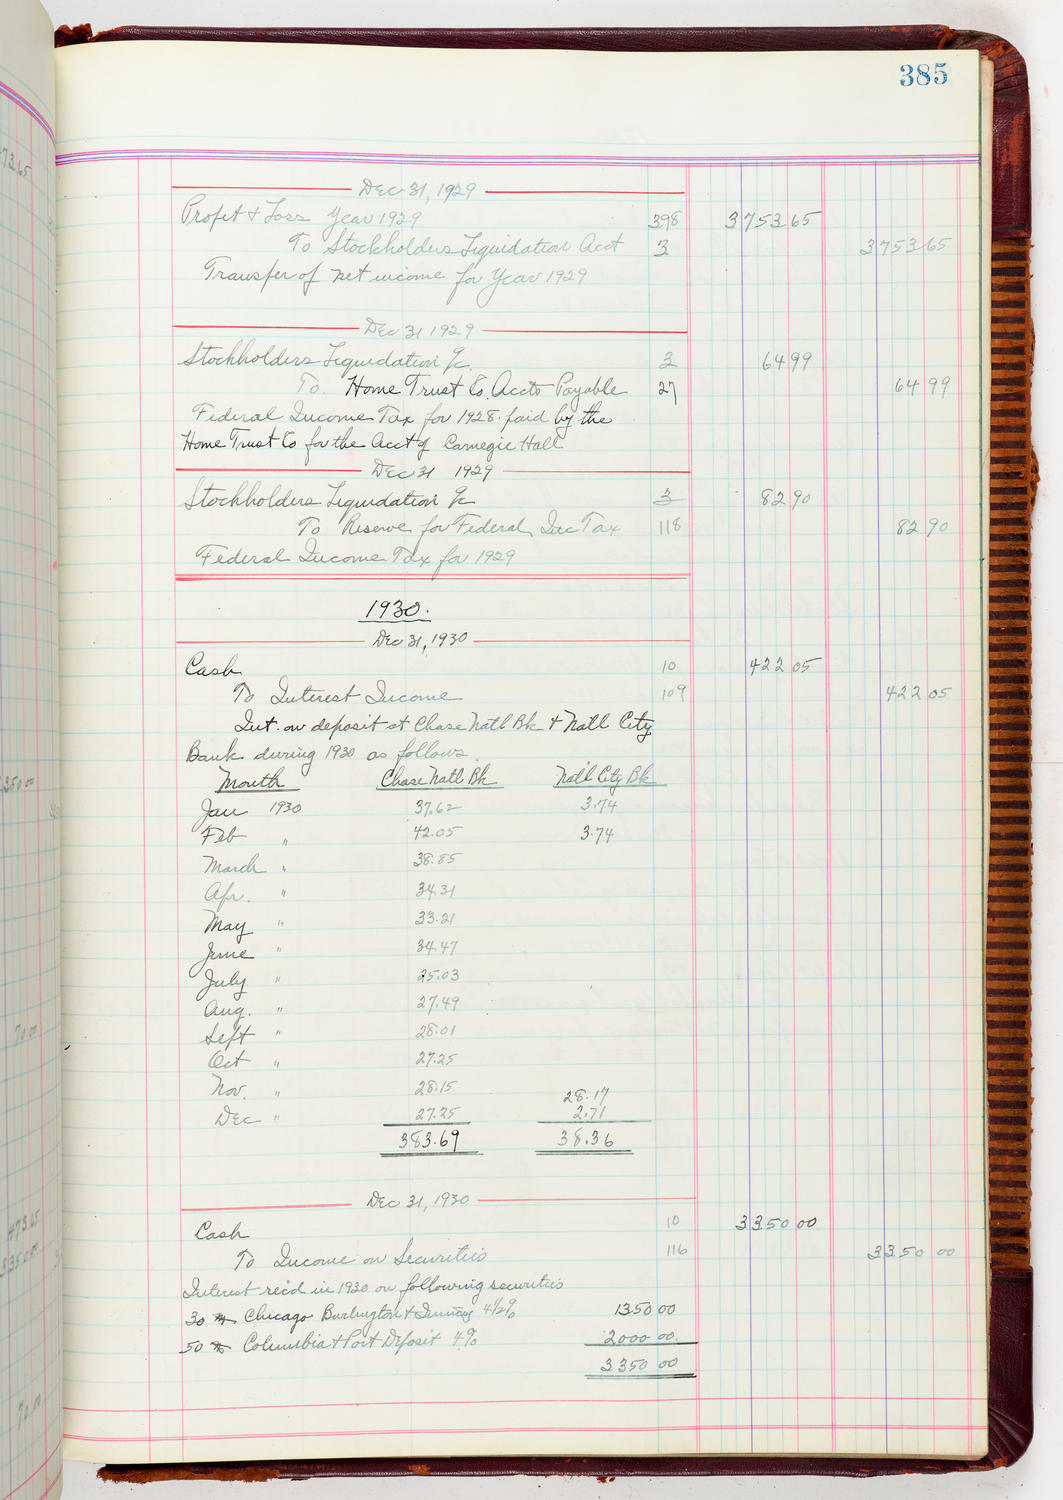 385
Dec 31, 1929
Profit & Loss Year 1929 398 3753 65
To Stockholders Liquidation Acct 3 3753 65
Transfer of net income for Year 1929
Dec 31 1929
Stockholders Liquidation 3 64 99
To Home Trust Co. Accts Payable 27 64 99
Federal Income Tax for 1928. paid by the
Home Trust Co for the Acct of Carnegie Hall
Dec 31 1929
Stockholders Liquidation 3 82 90
To Reserve for Federal Inc Tax 118 82 90
Federal Income Tax for 1929
1930.
Dec 31, 1930
Cash 10 422 05
To Interest Income 109 422 05
Int. on deposit at Chase Natl Bk & Natl City
Bank during 1930 as follows
Month Chase Natl Bk Natl City Bk
Jan 1930 37.62 3.74
Feb " 42.05 3.74
March " 38.85
Apr. " 34.31
May " 33.21
June " 34.47
July " 25.03
Aug. " 27.49
Sept " 28.01
Oct " 27.25
Nov. " 28.15 28.17
Dec " 27.25 2.71
383.69 38.36
Dec 31, 1930
Cash 10 3350 00
To Income on Securities 116 3350 00
Interest rec'd in 1930 on following securities
30 Chicago Burlington & 4½% 1350 00
50 Columbia & Port Deposit 4% 2000 00
3350 00